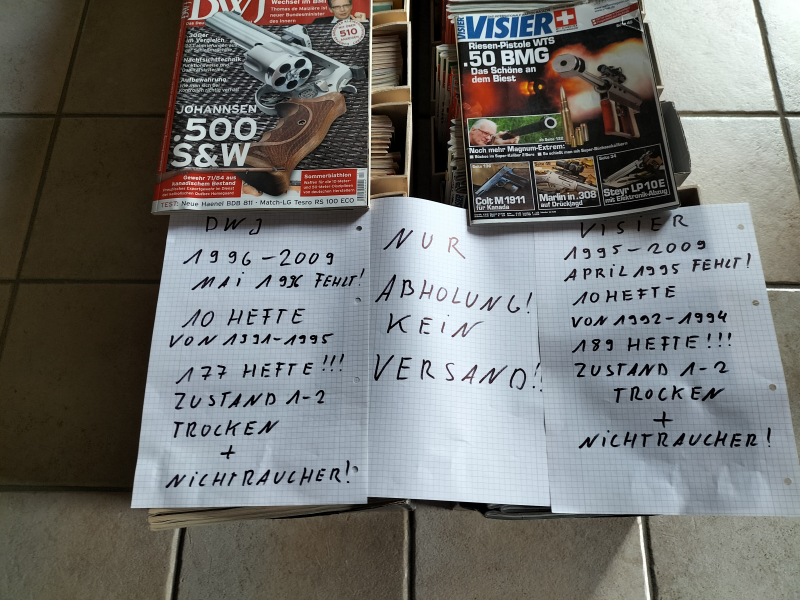 DWJ
Wechsel im BMI
Thomas de Maizière ist
neuer Bundesminister
des Innern
510
im Vergleich
Nachtsichttechnik
Aufbewahrung
JOHANNSEN
.500
S&W
Gewehr 71/84 aus
kanadischem Bestand
Sommerbiathlon
TEST: Neue Haenel BDB 811 · Match-LG Tesro RS 100 ECO
VISIER
Riesen-Pistole WTS
.50 BMG
Das Schöne an
dem Biest
Noch mehr Magnum-Extrem:
Colt M 1911
für Kanada
Marlin in .308
auf Drückjagd
Steyr LP 10 E
mit Elektronik-Abzug
DWJ
1996-2009
MAI 1996 FEHLT!
10 HEFTE
VON 1991-1995
177 HEFTE!!!
ZUSTAND 1-2
TROCKEN
+
NICHTRAUCHER!
NUR
ABHOLUNG!
KEIN
VERSAND!!
VISIER
1995-2009
APRIL 1995 FEHLT!
10 HEFTE
VON 1992-1994
189 HEFTE!!!
ZUSTAND 1-2
TROCKEN
+
NICHTRAUCHER!